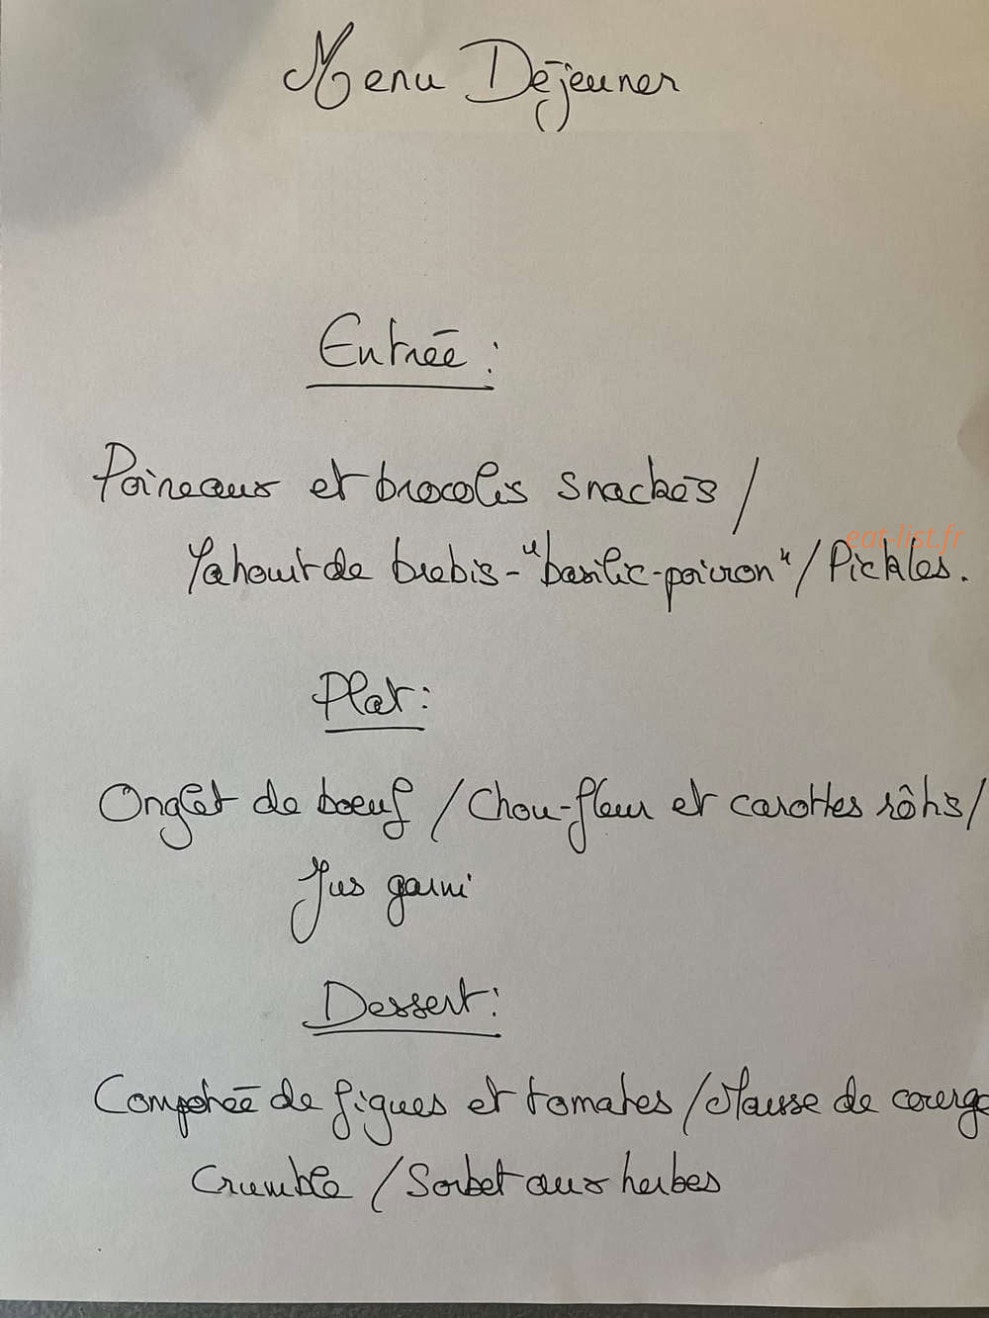 Menu Déjeuner
Entrée :
Poireaux et brocolis snackés /
Yahourt de brebis - "basilic-poivron" / Pickles.
eat-list.fr
Plat :
Onglet de boeuf / Chou-fleur et carottes rôtis /
Jus garni
Dessert :
Compotée de figues et tomates / Mousse de courge
Crumble / Sorbet aux herbes